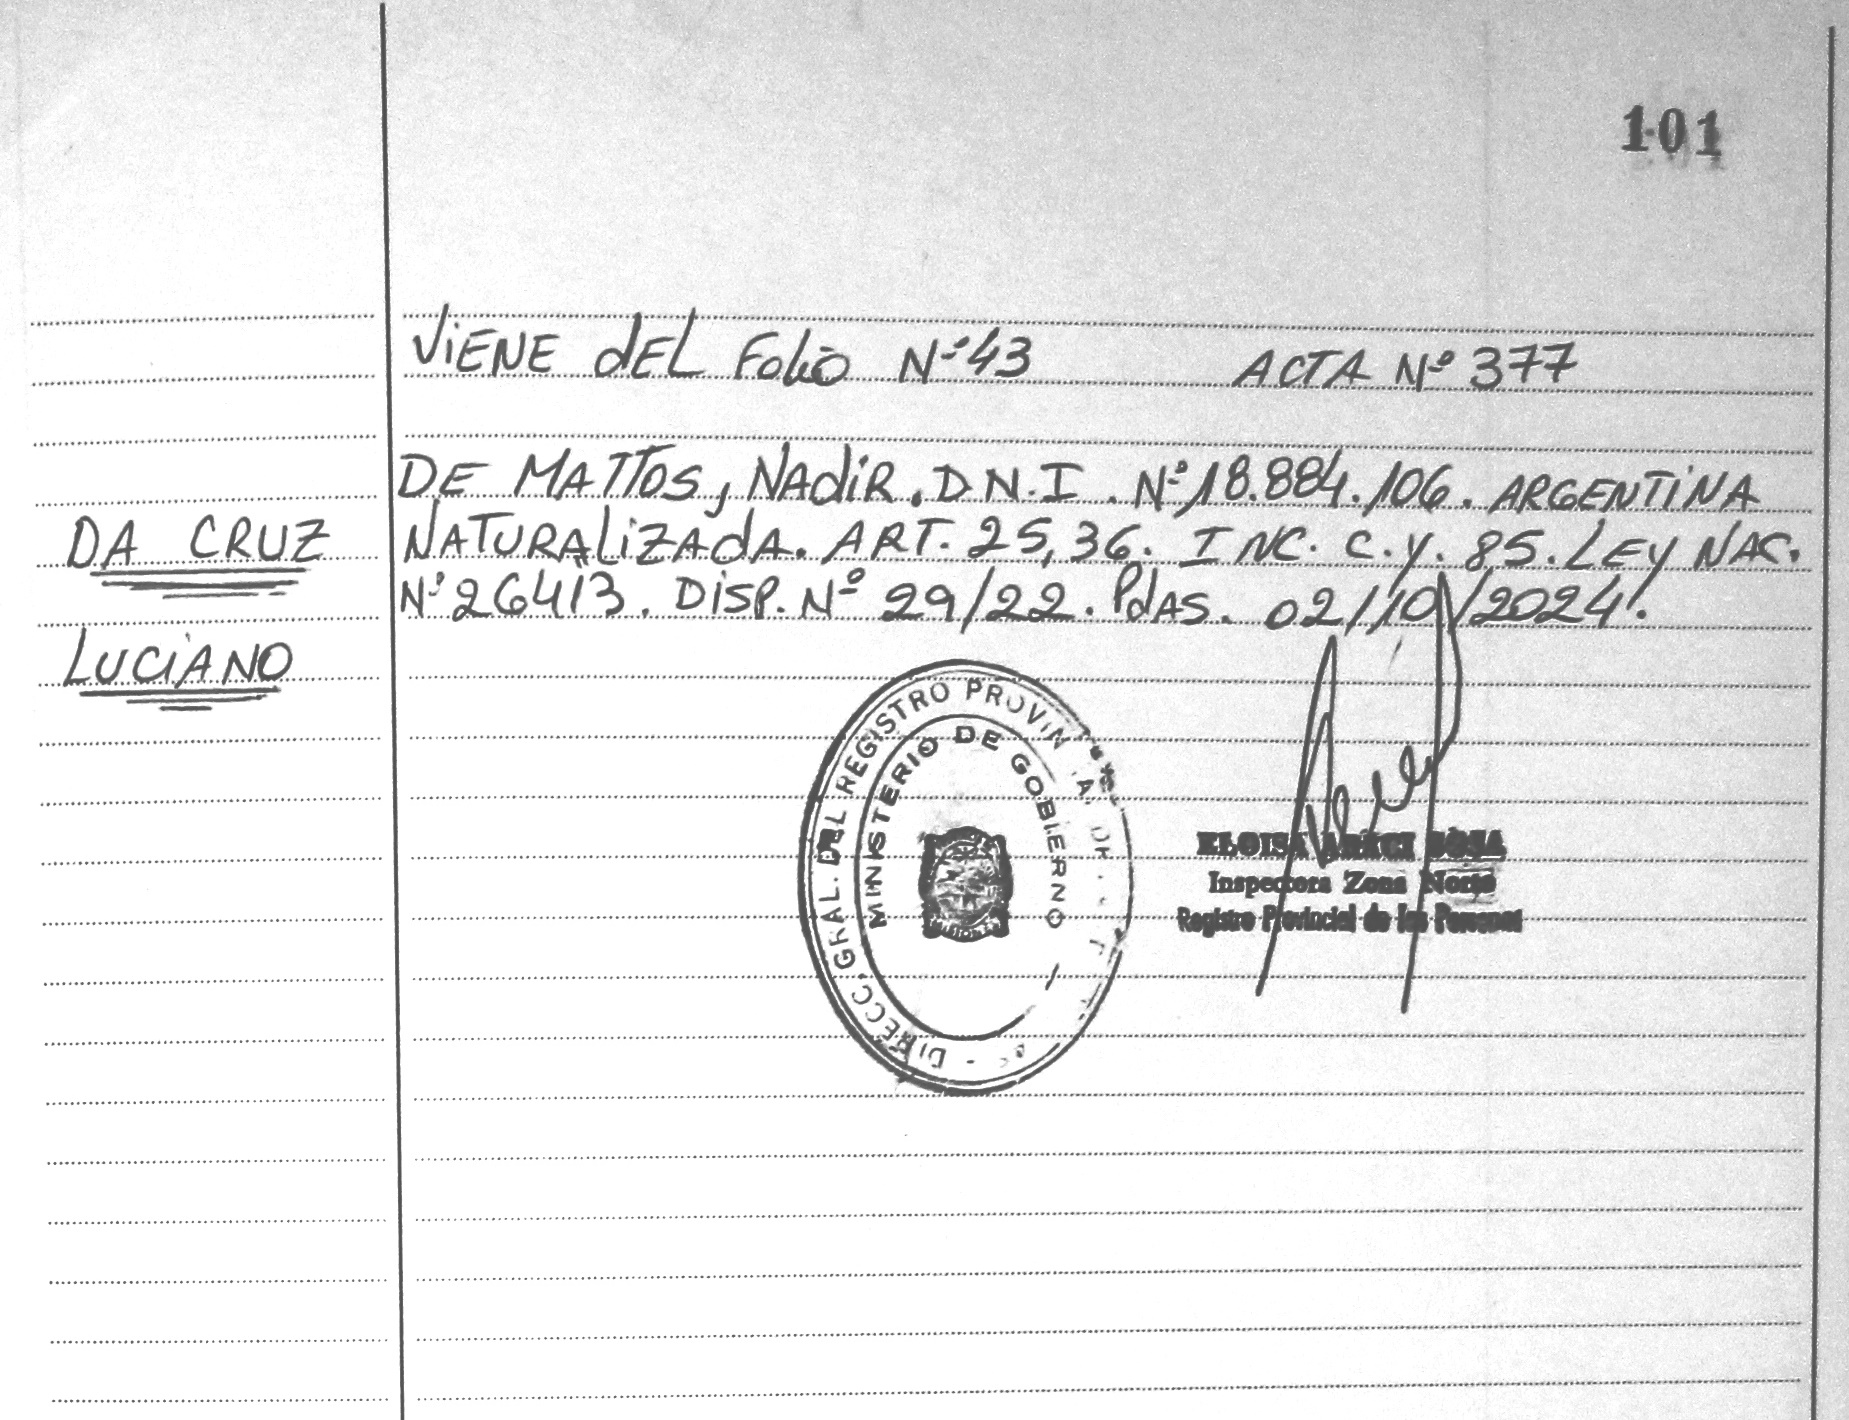 101
VIENE dEL Folio Nº 43 ACTA Nº 377
DE MATTOS, NAdiR. D.N.I. Nº 18.884.106. ARGENTINA
DA CRUZ
NATURALiZAdA. ART. 25, 36. INC. C.Y. 85. LEY NAC.
Nº 26413. DISP. Nº 29/22. PdAS. 02/10/2024.
LUCIANO
DIRECC. GRAL. DEL REGISTRO PROVIN
MINISTERIO DE GOBIERNO
ELOISA ARACI SOSA
Inspectora Zona Norte
Registro Provincial de las Personas